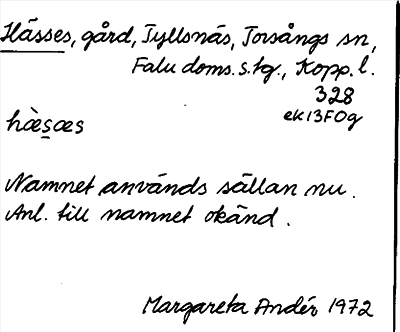 Hässes, gård, Tyllsnäs, Torsångs sn,
Falu doms.s.tg., Kopp.l.
328
ek13F0g
hæ̀s̠æs
Namnet används sällan nu.
Anl. till namnet okänd.
Margareta Andér 1972